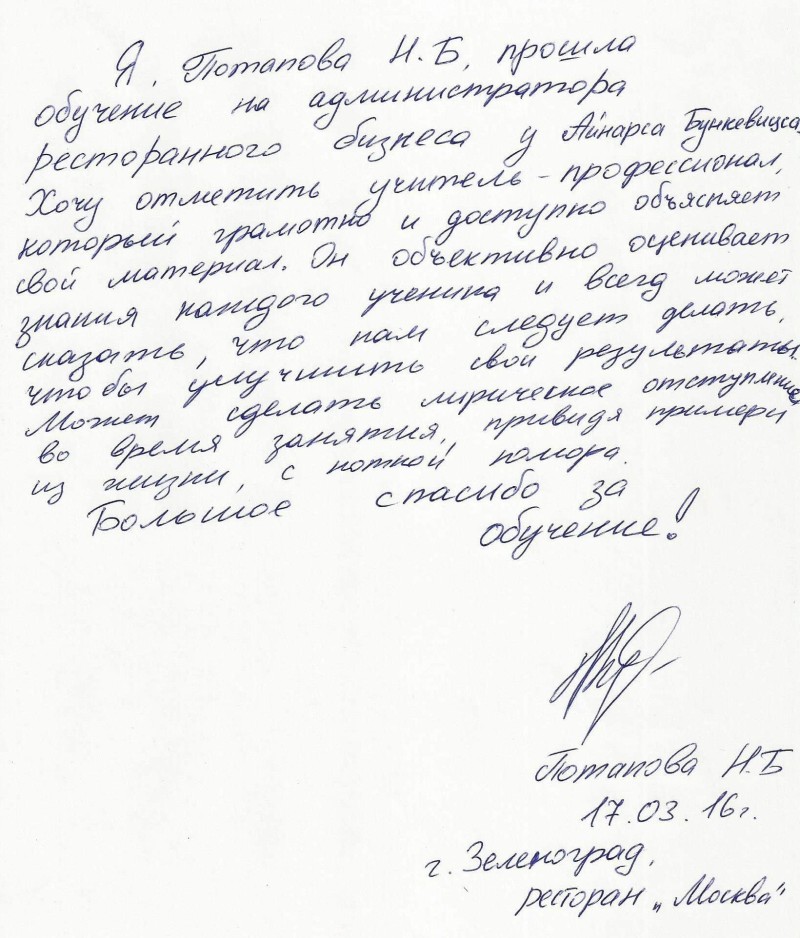 Я, Потапова Н.Б, прошла
обучение на администратора
ресторанного бизнеса у Айнарса Бункевицса.
Хочу отметить учитель-профессионал,
который грамотно и доступно объясняет
свой материал. Он объективно оценивает
знания каждого ученика и всегд может
сказать, что нам следует делать,
чтобы улучшить свои результаты.
Может сделать лирическое отступление
во время занятия, привидя примеры
из жизни, с ноткой юмора.
Большое спасибо за
обучение!
Потапова Н.Б
17.03.16г.
г. Зеленоград,
ресторан „Москва"